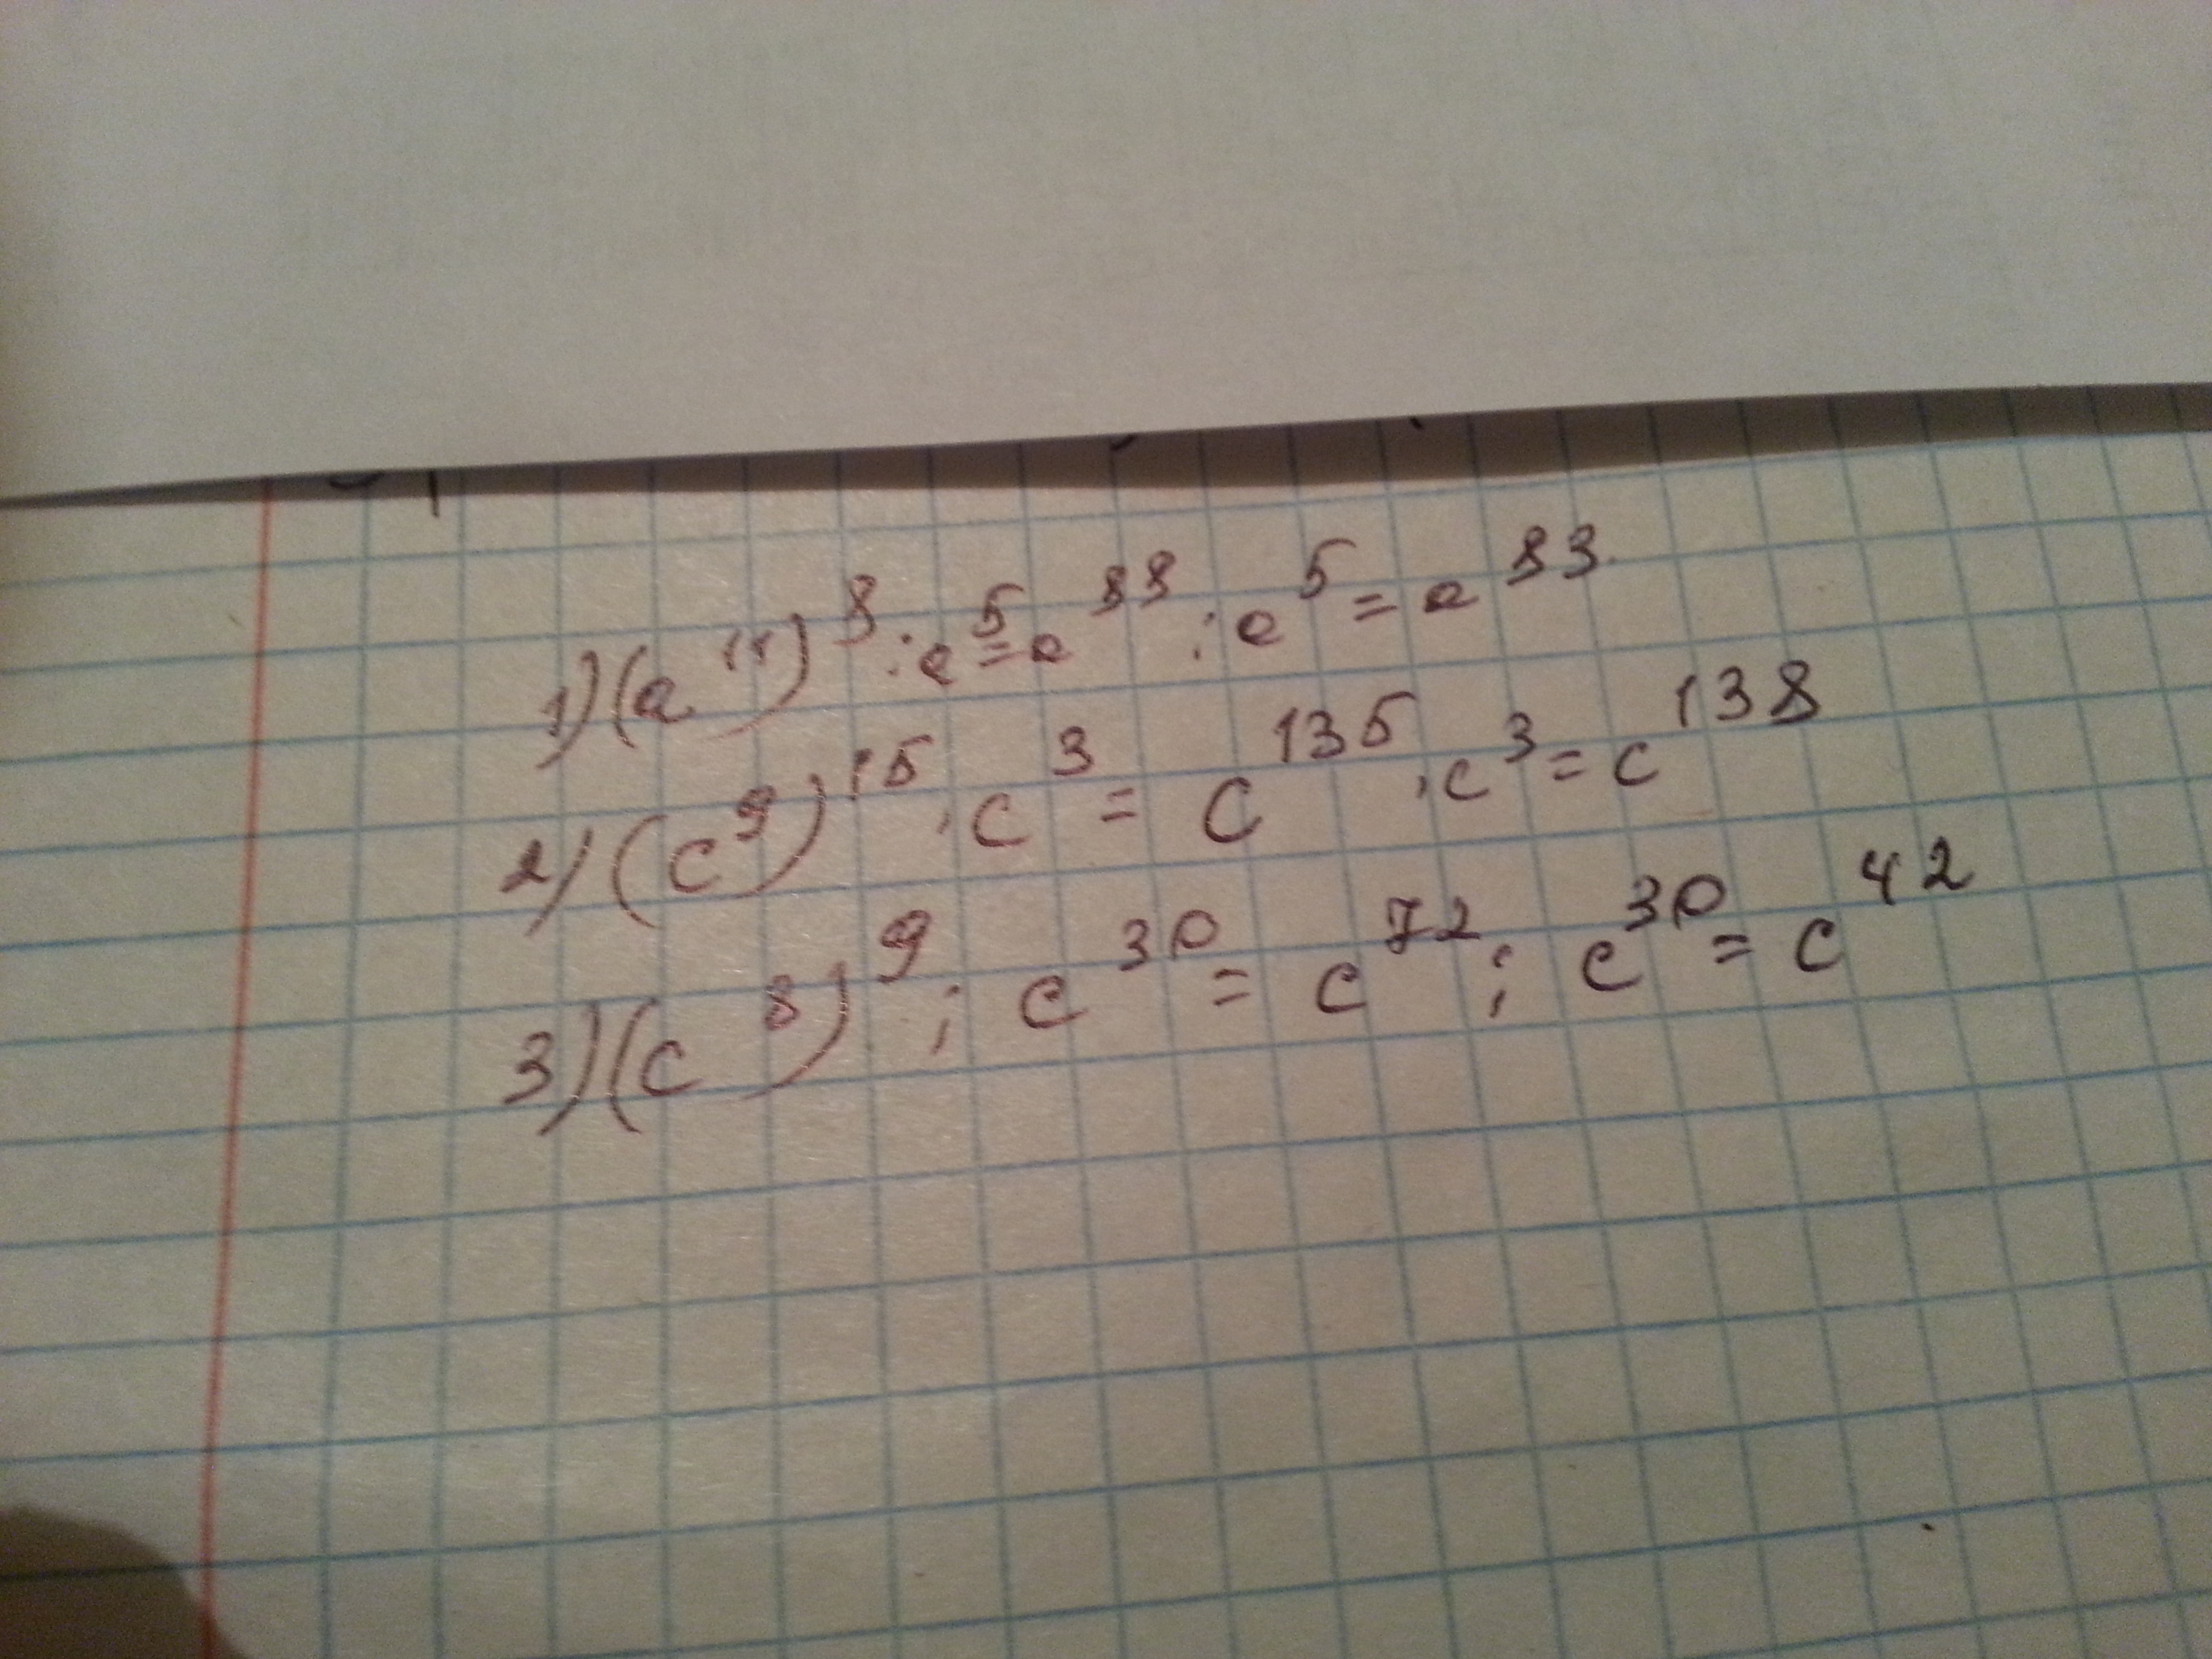 1) (a¹¹)⁸ : a⁵ = a⁸⁸ : a⁵ = a⁸³
2) (c⁹)¹⁵ · c³ = c¹³⁵ · c³ = c¹³⁸
3) (c⁸)⁹ : c³⁰ = c⁷² : c³⁰ = c⁴²